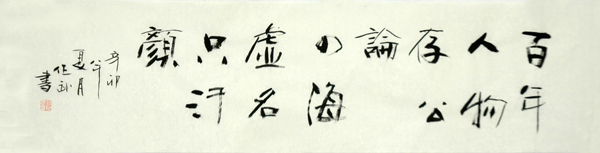 百年
人物
存公
論
四海
虚名
只汗
顏
辛卯
年
夏月
書